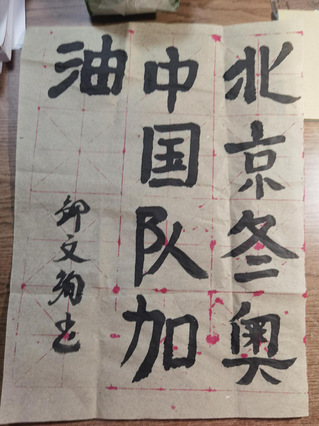 北京冬奥
中国队加
油
文书